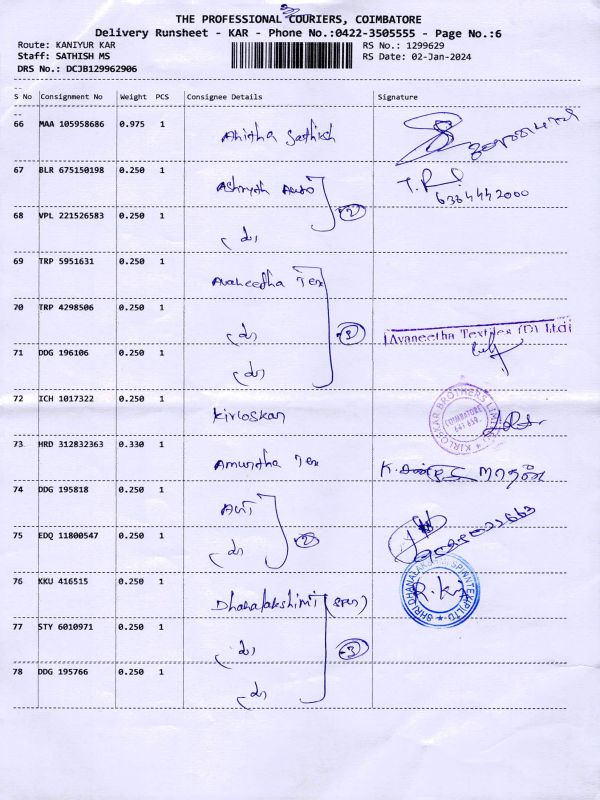 THE PROFESSIONAL COURIERS, COIMBATORE
Delivery Runsheet - KAR - Phone No.:0422-3505555 - Page No.:6
Route: KANIYUR KAR
RS No.: 1299629
Staff: SATHISH MS
RS Date: 02-Jan-2024
DRS No.: DCJB129962906
S No Consignment No Weight PCS Consignee Details Signature
66 MAA 105958686 0.975 1
67 BLR 675150198 0.250 1
6384442000
68 VPL 221526583 0.250 1 2
69 TRP 5951631 0.250 1 Avaneetha Tex
70 TRP 4298506 0.250 1 3 Avaneetha Textiles (P) Ltd
71 DDG 196106 0.250 1
72 ICH 1017322 0.250 1 Kirloskar KIRLOSKAR BROTHERS LIMITED COIMBATORE
73 HRD 312832363 0.330 1 Amurtha Tex
74 DDG 195818 0.250 1
75 EDQ 11800547 0.250 1 2
76 KKU 416515 0.250 1 Dhanalakshimi SHRI DHANALAKSHMI SPINNTEX (P) LTD
77 STY 6010971 0.250 1 3
78 DDG 195766 0.250 1